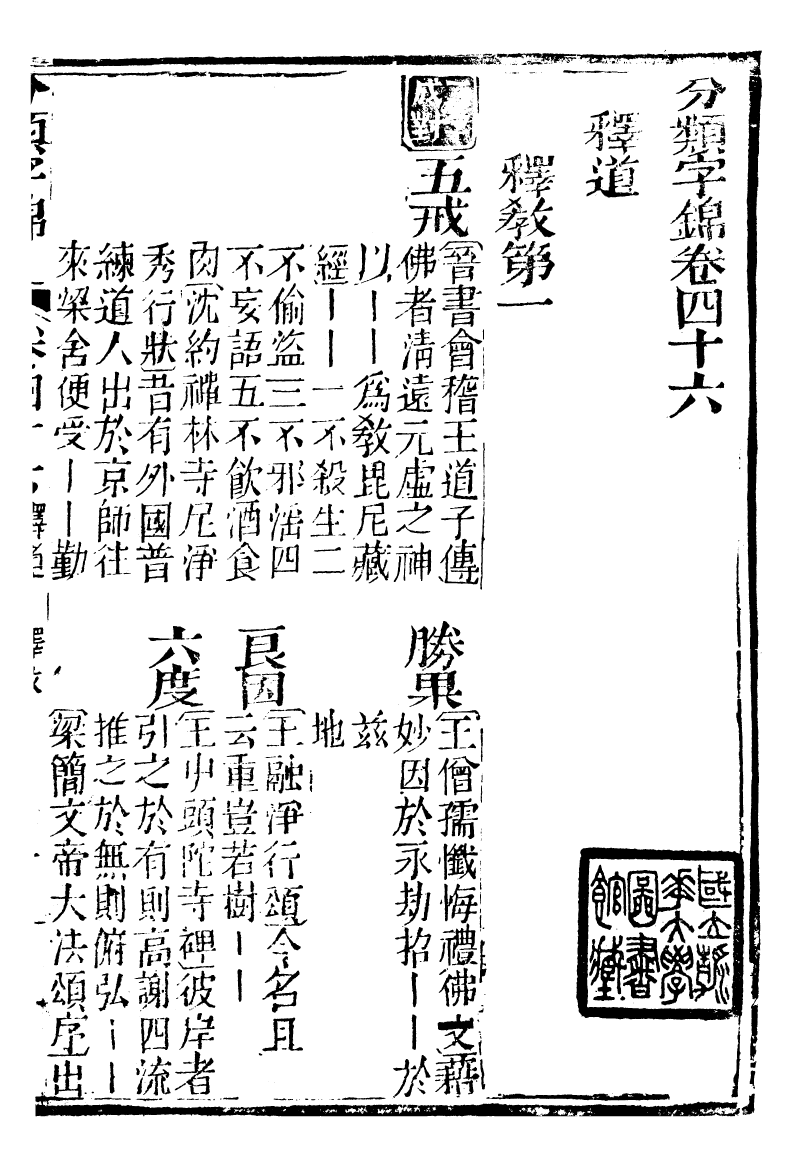 分類字錦卷四十六
釋道
釋教第一
五戒
晉書會稽王道子傳
佛者清遠元虛之神
以丨丨爲教毘尼藏
經丨丨一不殺生二
不偷盜三不邪淫四
不妄語五不飲酒食
肉沈約禪林寺尼淨
秀行狀昔有外國普
練道人出於京師往
來梁舍便受丨丨勤
勝果
王僧孺懺悔禮佛文藉
妙因於永劫招丨丨於
茲
地
良因
王融淨行頌今名且
云重豈若樹丨丨
六度
王屮頭陀寺碑彼岸者
引之於有則高謝四流
推之於無則俯弘丨丨
梁簡文帝大法頌序出
分類字錦
卷四十六釋道
釋教
國立清
華大學
圖書
館藏